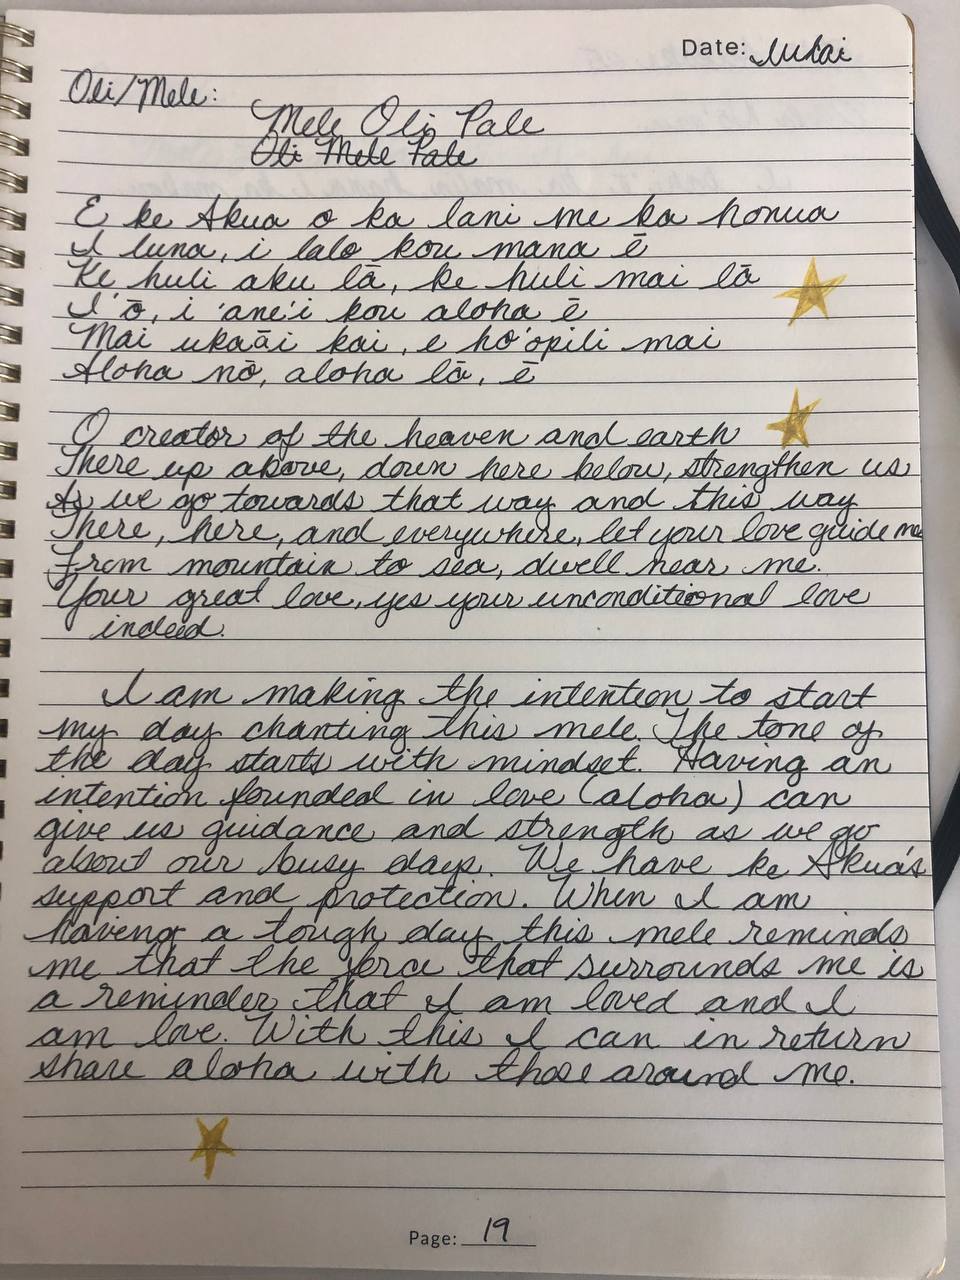 Date: Iulai
Oli/Mele:
Mele Oli Pale
Oli Mele Pale
E ke Akua o ka lani me ka honua
I luna, i lalo kou mana ē
Ke huli aku lā, ke huli mai lā
I 'ō, i 'ane'i kou aloha ē
Mai ukaāi kai, e ho'opili mai
Aloha nō, aloha lā, ē
O creator of the heaven and earth
There up above, down here below, strengthen us
As we go towards that way and this way
There, here, and everywhere, let your love guide me
From mountain to sea, dwell near me.
Your great love, yes your unconditional love
indeed.
I am making the intention to start
my day chanting this mele. The tone of
the day starts with mindset. Having an
intention founded in love (aloha) can
give us guidance and strength as we go
about our busy days. We have ke Akua's
support and protection. When I am
having a tough day this mele reminds
me that the force that surrounds me is
a reminder that I am loved and I
am love. With this I can in return
share aloha with those around me.
Page: 19